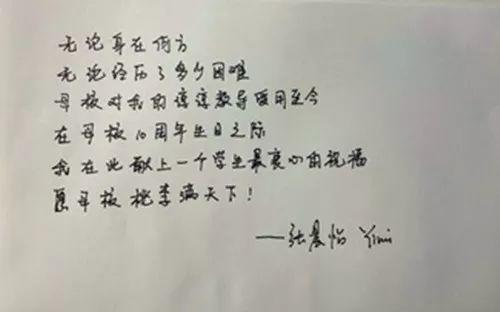 无论身在何方
无论经历了多少困难
母校对我的谆谆教导受用至今
在母校10周年生日之际
我在此献上一个学生最衷心的祝福
愿母校桃李满天下！
——张晨怡 Yimi